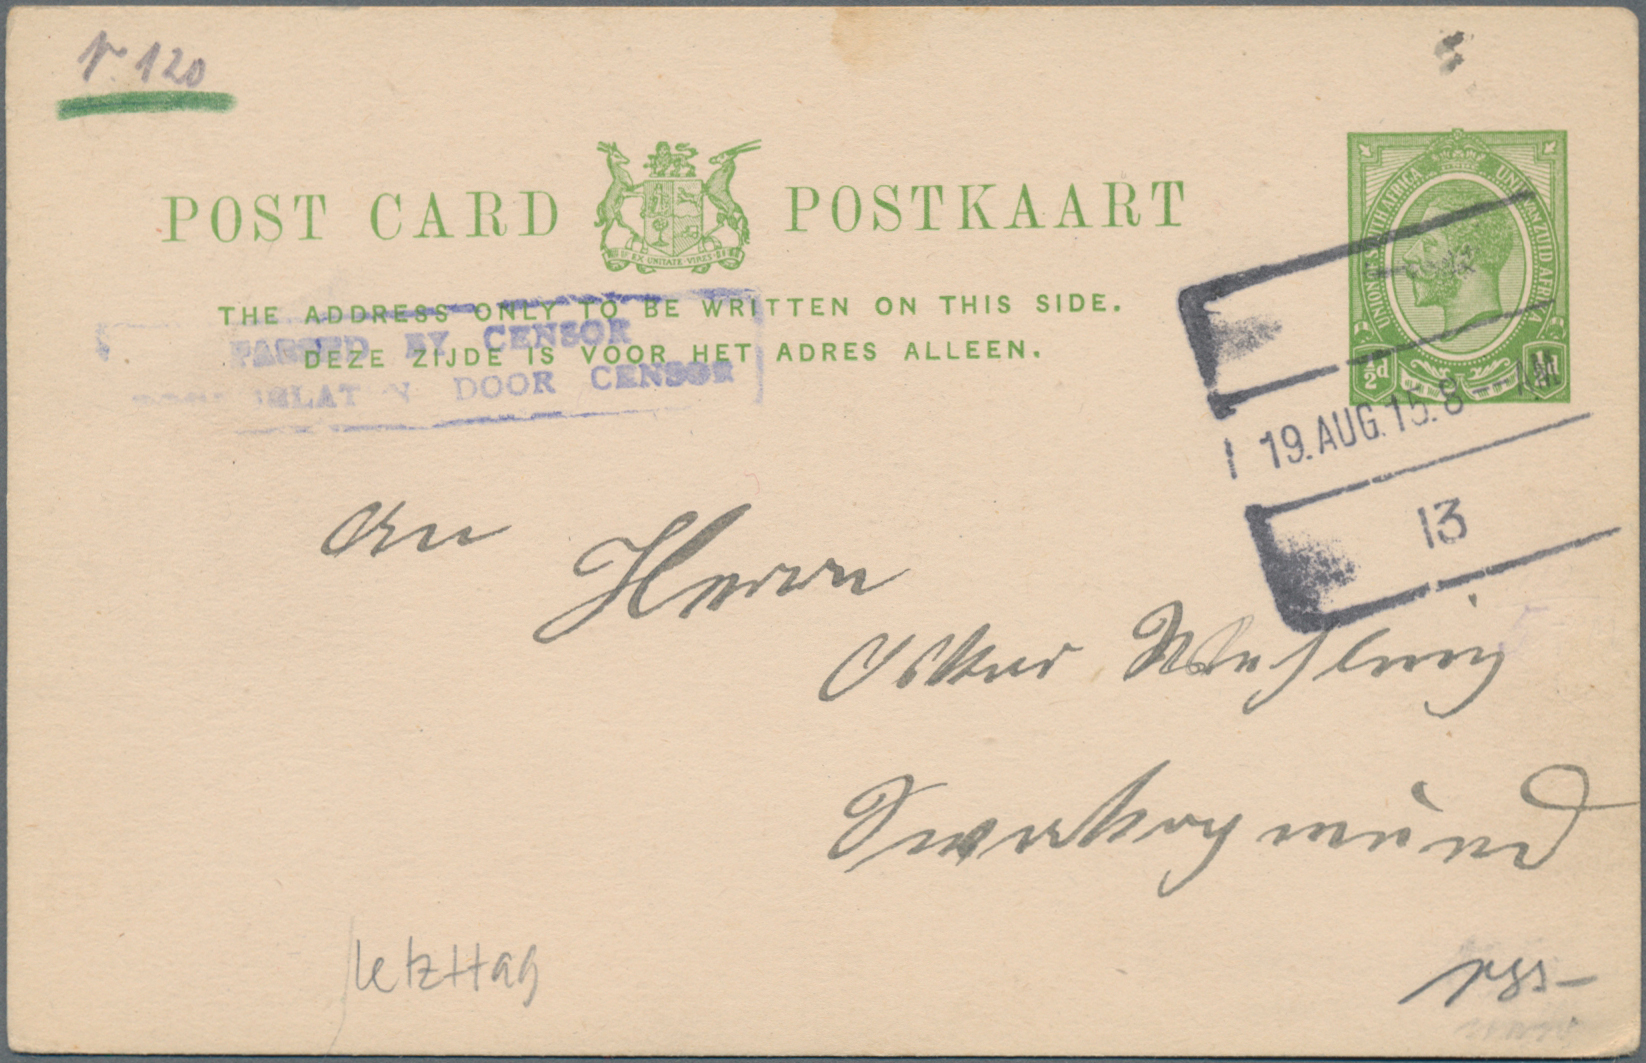 120
POST CARD POSTKAART
EX UNITATE VIRES
UNION OF SOUTH AFRICA UNIE VAN ZUID AFRIKA
½d ½d
THE ADDRESS ONLY TO BE WRITTEN ON THIS SIDE.
DEZE ZIJDE IS VOOR HET ADRES ALLEEN.
PASSED BY CENSOR
DOOR CENSOR
19.AUG.15.8 - AM
13
An
Herrn
Oskar
Swakopmünd
letzttag